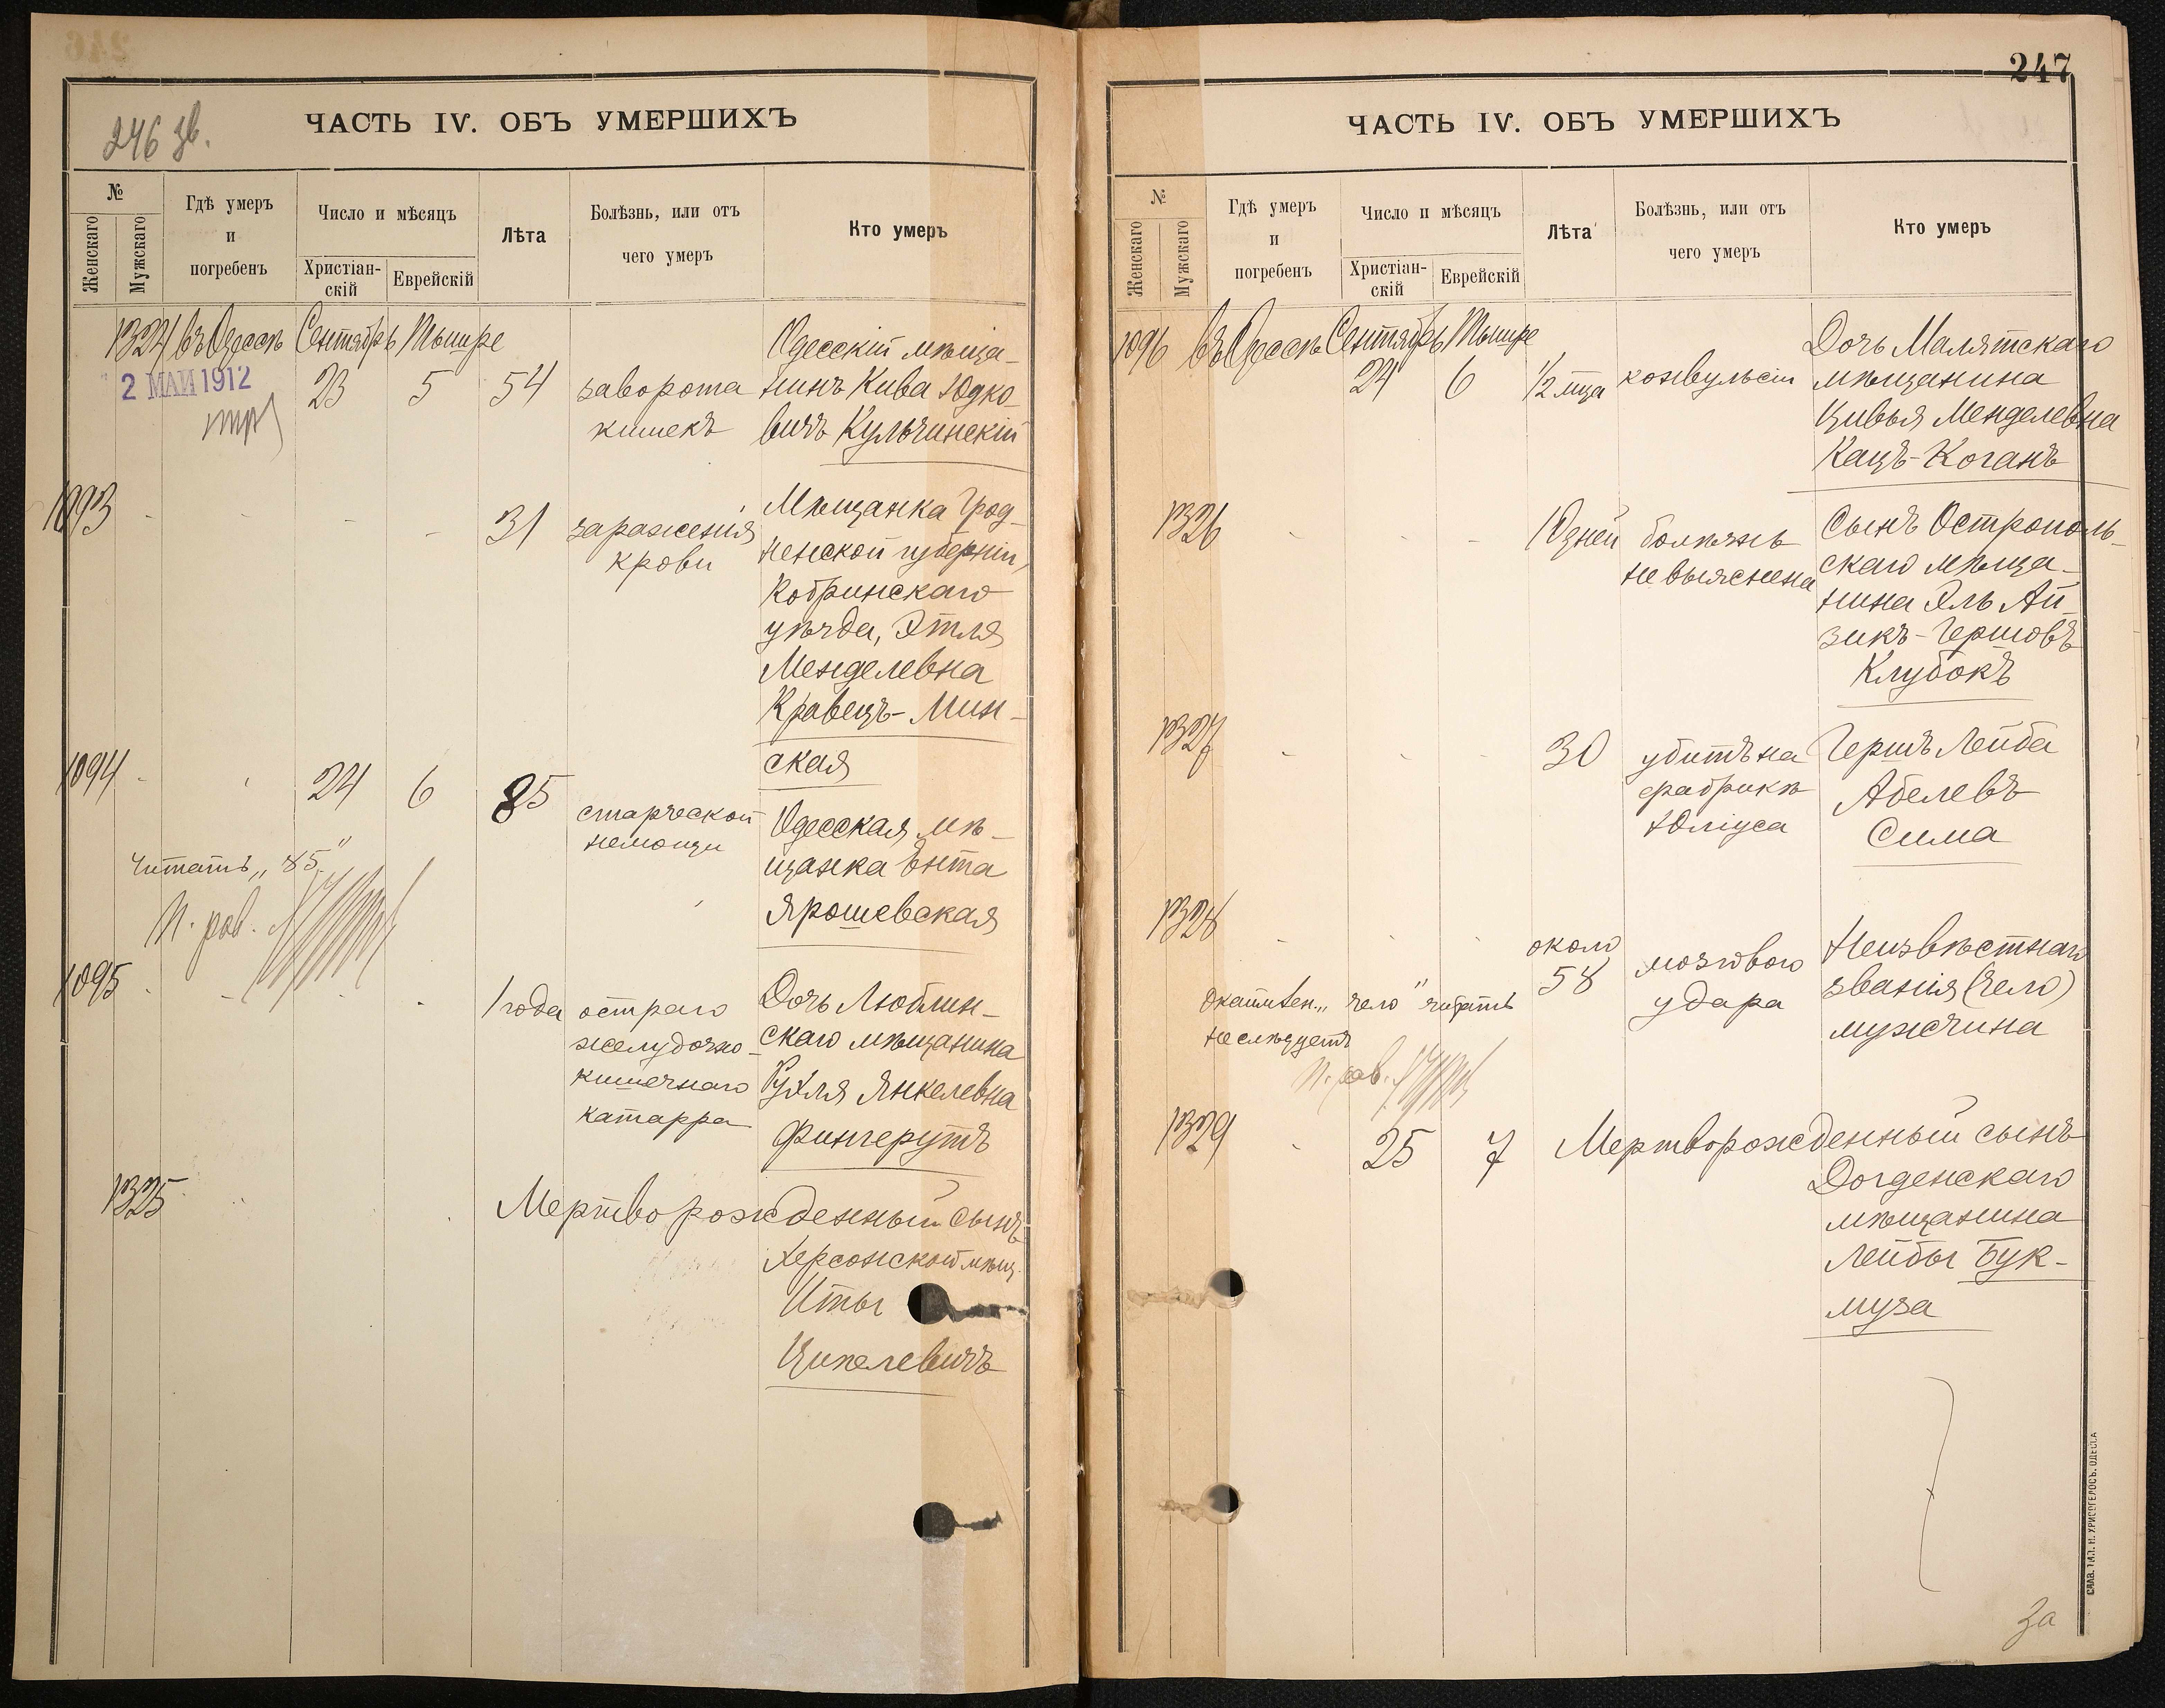 246 зв.
ЧАСТЬ IV. ОБЪ УМЕРШИХЪ
№
Женскаго
Мужскаго
Гдѣ умеръ
и
погребенъ
Число и мѣсяцъ
Христіан-
скій
Еврейскій
Лѣта
Болѣзнь, или отъ
чего умеръ
Кто умеръ
1324 въ Одессѣ Сентябрь Тышре
2 МАЙ 1912
23 5 54 заворота
кишекъ
Одесскій мѣща-
нинъ Кива Юдко-
вичъ Кульчинскій
1093
31 зараженія
крови
Мѣщанка Грод-
ненской губерніи,
Кобринскаго
уѣзда, Этля
Менделевна
Кравецъ-Мин-
ская
1094 24 6 85 старческой
немощи
Одесская мѣ-
щанка Ента
Ярошевская
Читать „85”
П. рав.
1095
1 года остраго
желудочно-
кишечнаго
катарра
Дочь Люблин-
скаго мѣщанина
Рухля Янкелевна
Фингерутъ
1325
Мертворожденный сынъ
Херсонской мѣщ.
Иты
Ципелевичъ
247
ЧАСТЬ IV. ОБЪ УМЕРШИХЪ
№
Женскаго
Мужскаго
Гдѣ умеръ
и
погребенъ
Число и мѣсяцъ
Христіан-
скій
Еврейскій
Лѣта
Болѣзнь, или отъ
чего умеръ
Кто умеръ
1096 въ Одессѣ Сентябрь Тышре
24 6 1/2 мца конвульсіи
Дочь Малятскаго
мѣщанина
Цивья Менделевна
Кацъ-Коганъ
1326
10 дней болѣзнь
не выяснена
Сынъ Острополь-
скаго мѣща-
нина Эль Ай-
зикъ-Гершовъ
Клубокъ
1327
30 убитъ на
фабрикѣ
Юліуса
Гершъ Лейба
Абелевъ
Сима
1328
около
58 мозговаго
удара
Неизвѣстнаго
званія (чело)
мужчина
„чело” читать
не слѣдуетъ
П. рав.
1329 25 7 Мертворожденный сынъ
Догденскаго
мѣщанина
Лейбы Бук-
муза
За
СЛАВ. ТИП. Н. ХРИСОГЕЛОСЪ. ОДЕССА